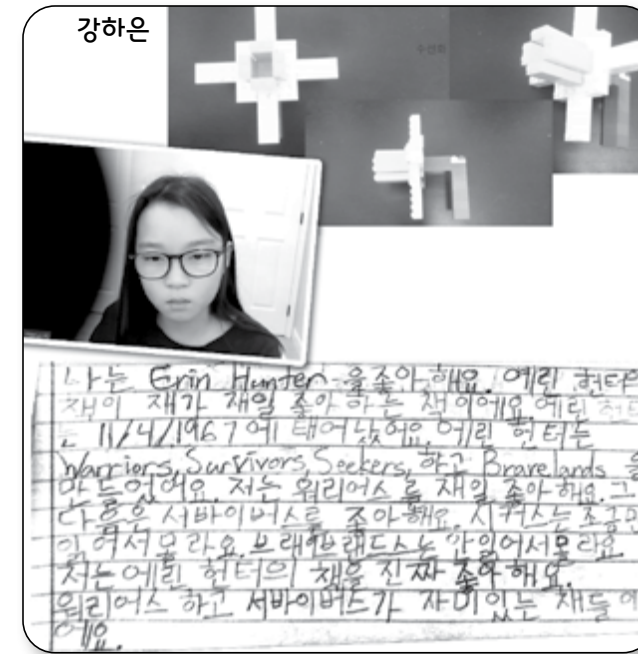 강하은
수선화
나는 Erin Hunter 을 좋아 해요. 에린 헌터의
책이 재가 재일 좋아 하는 책 이에요. 에린 헌터
는 11/4/1967 에 태어났어요. 에린 헌터는
Warriors, Survivors, Seekers, 하고 Bravelands 을
만들었어요. 저는 워리어스를 재일 좋아 해요. 그
다음은 서바이버스를 좋아해요. 시커스는 조금만
읽어서 몰라요. 브래이브랜드스는 안일어서 몰라요
저는 에린 헌터의 책을 진짜 좋아 해요.
워리어스 하고 서바이버드가 자미있는 채들 이
에요.